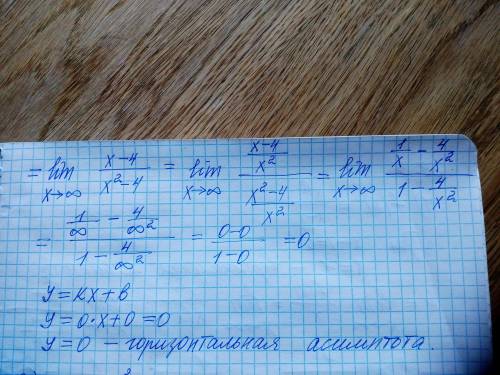 = lim x→∞ (x-4)/(x²-4) = lim x→∞ ((x-4)/x²)/((x²-4)/x²) = lim x→∞ (1/x - 4/x²)/(1 - 4/x²)
= (1/∞ - 4/∞²)/(1 - 4/∞²) = (0-0)/(1-0) = 0
y = kx + b
y = 0·x + 0 = 0
y = 0 — горизонтальная асимптота.